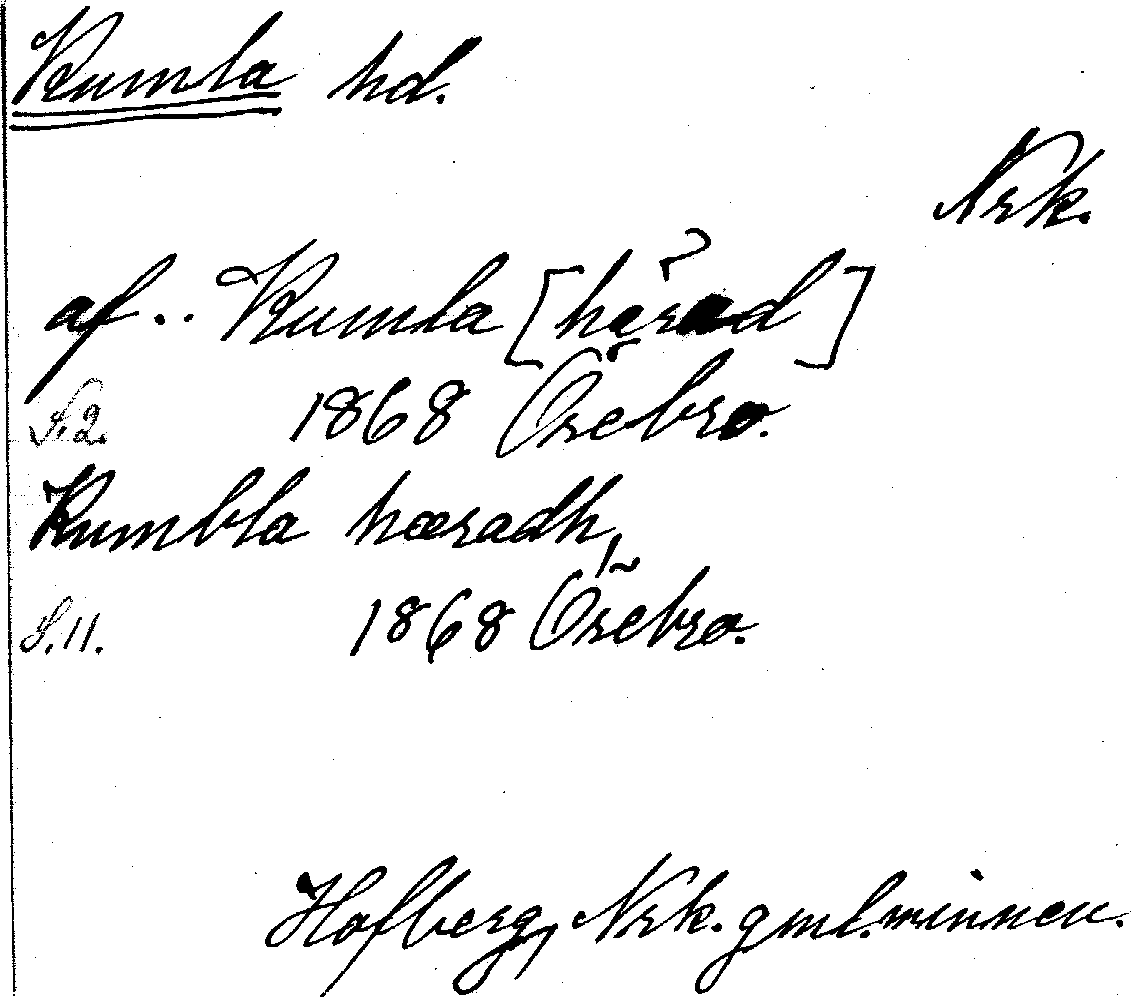 Kumla hd.
Nrk.
af.. Kumla [härad]
S.2. 1868 Örebro.
Kumbla hæradh,
S.11. 1868 Örebro.
Hofberg, Nrk. gml. minnen.